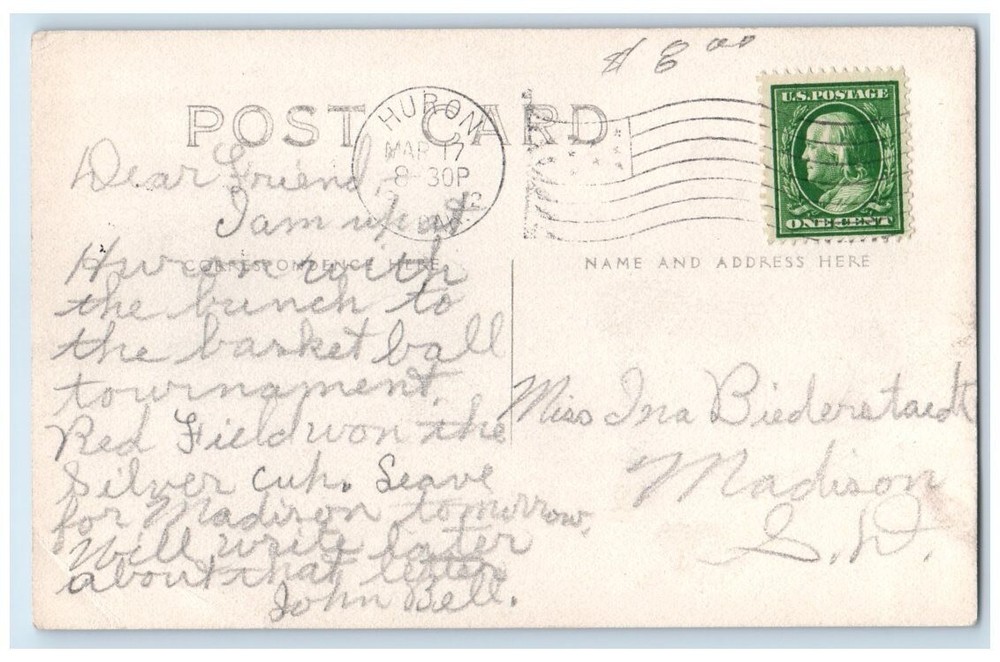 $ 8.00
POST CARD
HURON
MAR 17
8-30P
U.S. POSTAGE
ONE CENT
Dear Friend,
I am up at
CORRESPONDENCE HERE
NAME AND ADDRESS HERE
Huron with
the bunch to
the basket ball
tournament.
Red Field won the
Silver cup. Leave
for Madison tomorrow.
Will write later
about that letter.
John Bell.
Miss Ina Biederstaedt
Madison
S.D.